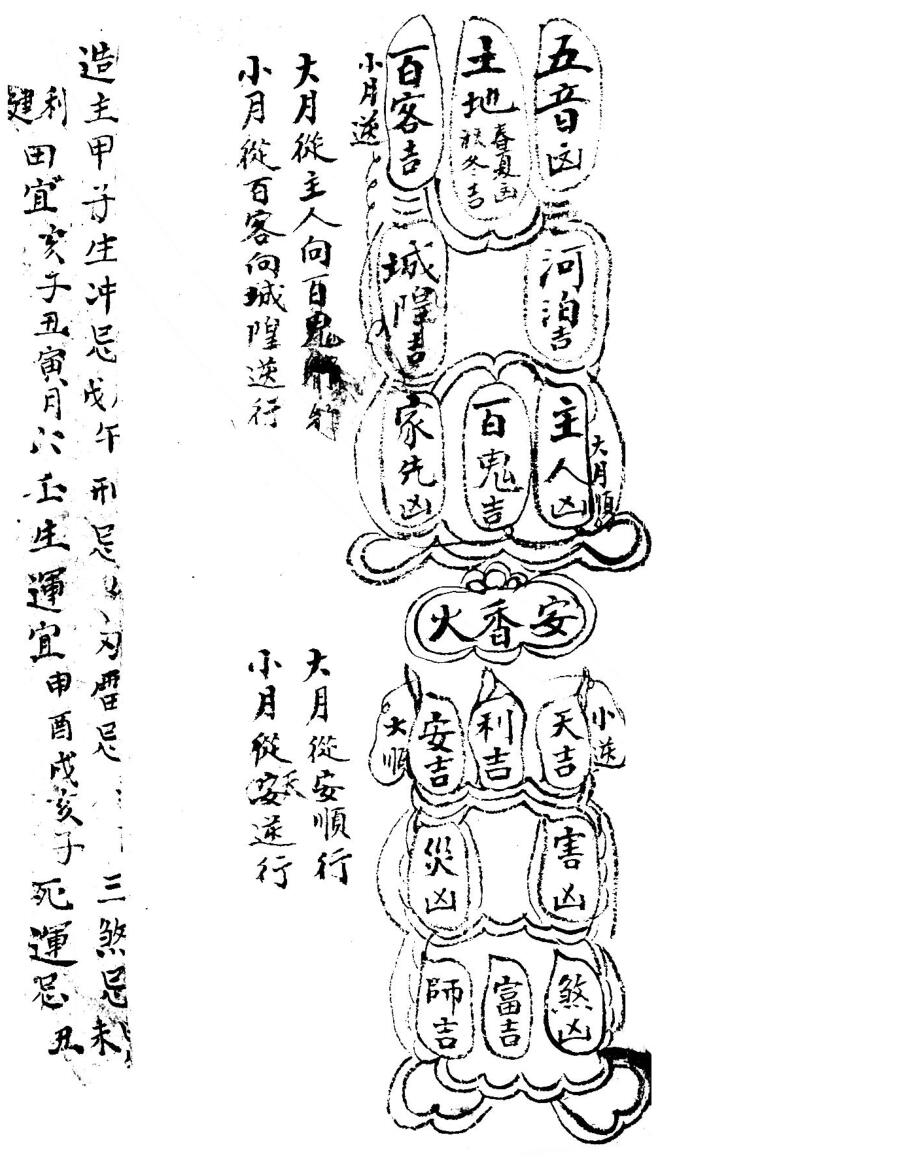 五音凶
土地
春夏凶
秋冬吉
百客吉
小月逆
河泊吉
城隍吉
主人凶
大月順
百鬼吉
家先凶
大月從主人向百鬼
小月從百客向城隍逆行
安香火
小逆
天吉
利吉
安吉
大順
害凶
災凶
煞凶
富吉
師吉
大月從安順行
小月從天逆行
造主甲子生冲忌戊午刑忌刃雷忌三煞忌未
利建田宜亥子丑寅月生運宜申酉戌亥子死運忌丑